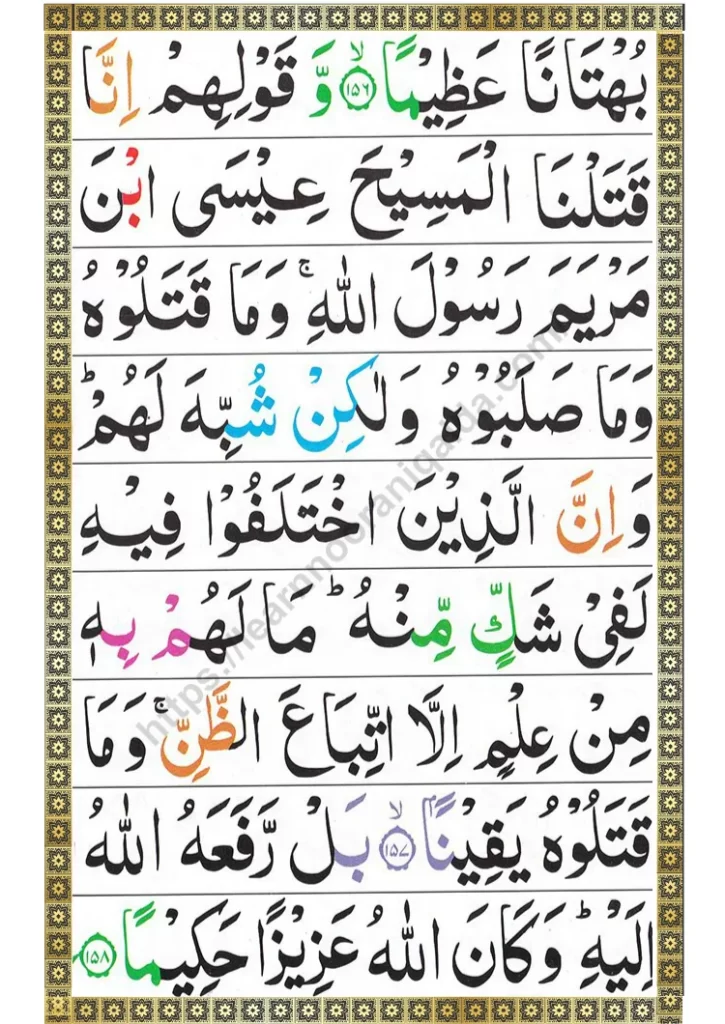 بُهْتَانًا عَظِيْمًا ۙ﴿۱۵۶﴾ وَّ قَوْلِهِمْ اِنَّا
قَتَلْنَا الْمَسِيْحَ عِيْسَى ابْنَ
مَرْيَمَ رَسُوْلَ اللّٰهِ ۚ وَمَا قَتَلُوْهُ
وَمَا صَلَبُوْهُ وَلٰكِنْ شُبِّهَ لَهُمْ ؕ
وَاِنَّ الَّذِيْنَ اخْتَلَفُوْا فِيْهِ
لَفِيْ شَكٍّ مِّنْهُ ؕ مَا لَهُمْ بِهٖ
مِنْ عِلْمٍ اِلَّا اتِّبَاعَ الظَّنِّ ۚ وَمَا
قَتَلُوْهُ يَقِيْنًۢا ۙ﴿۱۵۷﴾ بَلْ رَّفَعَهُ اللّٰهُ
اِلَيْهِ ؕ وَكَانَ اللّٰهُ عَزِيْزًا حَكِيْمًا ﴿۱۵۸﴾
https://learnnooraniqaida.com/